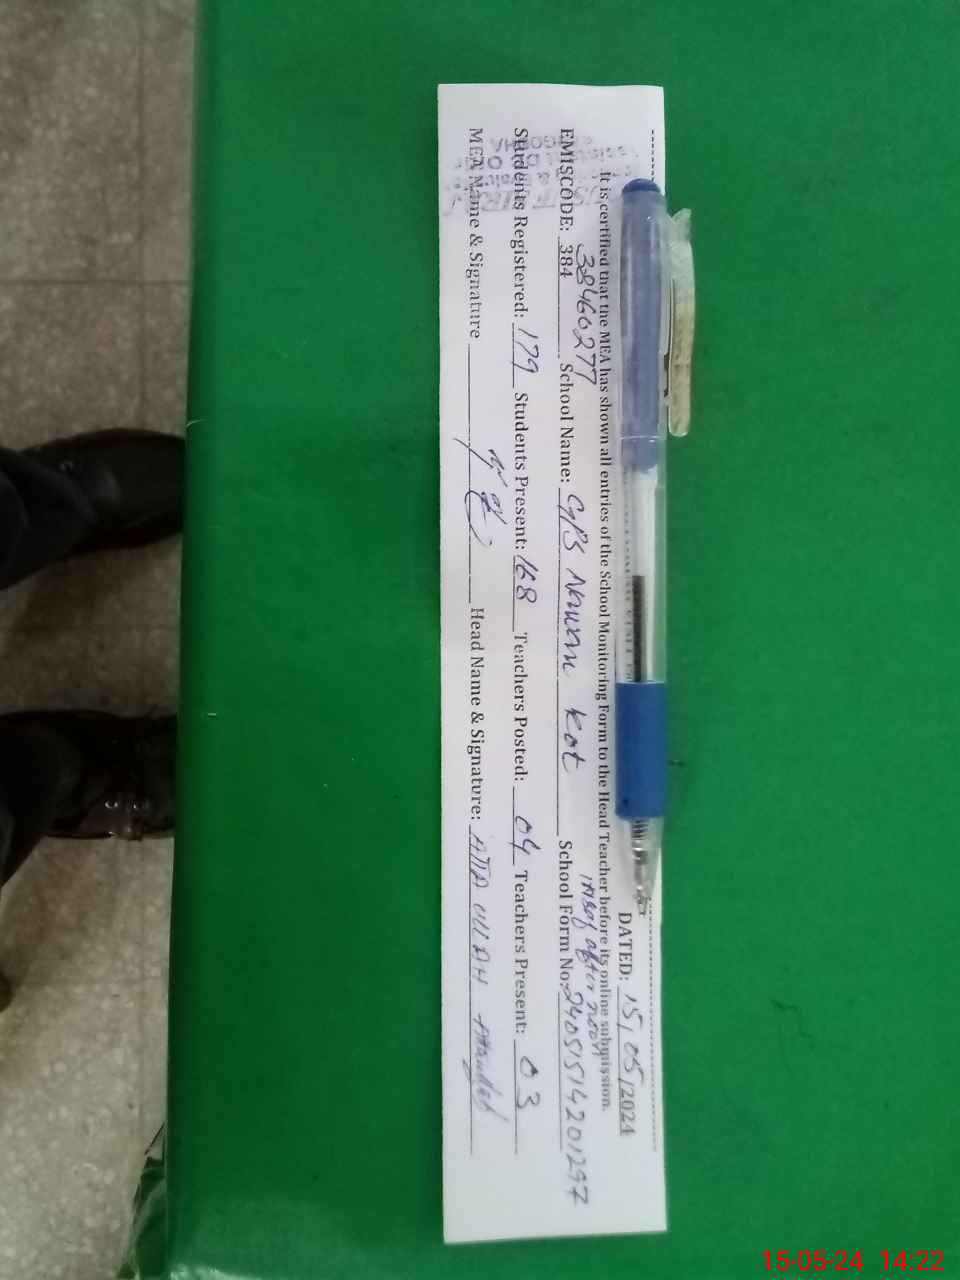 DATED: 15/05/2024
It is certified that the MEA has shown all entries of the School Monitoring Form to the Head Teacher before its online submission.
after noon
38460277
EMISCODE: 384 School Name: GPS Nawan Kot School Form No: 24051514201297
Students Registered: 179 Students Present: 168 Teachers Posted: 04 Teachers Present: 03
MEA Name & Signature Head Name & Signature: ATTA ULLAH Attaullah
15-05-24 14:22